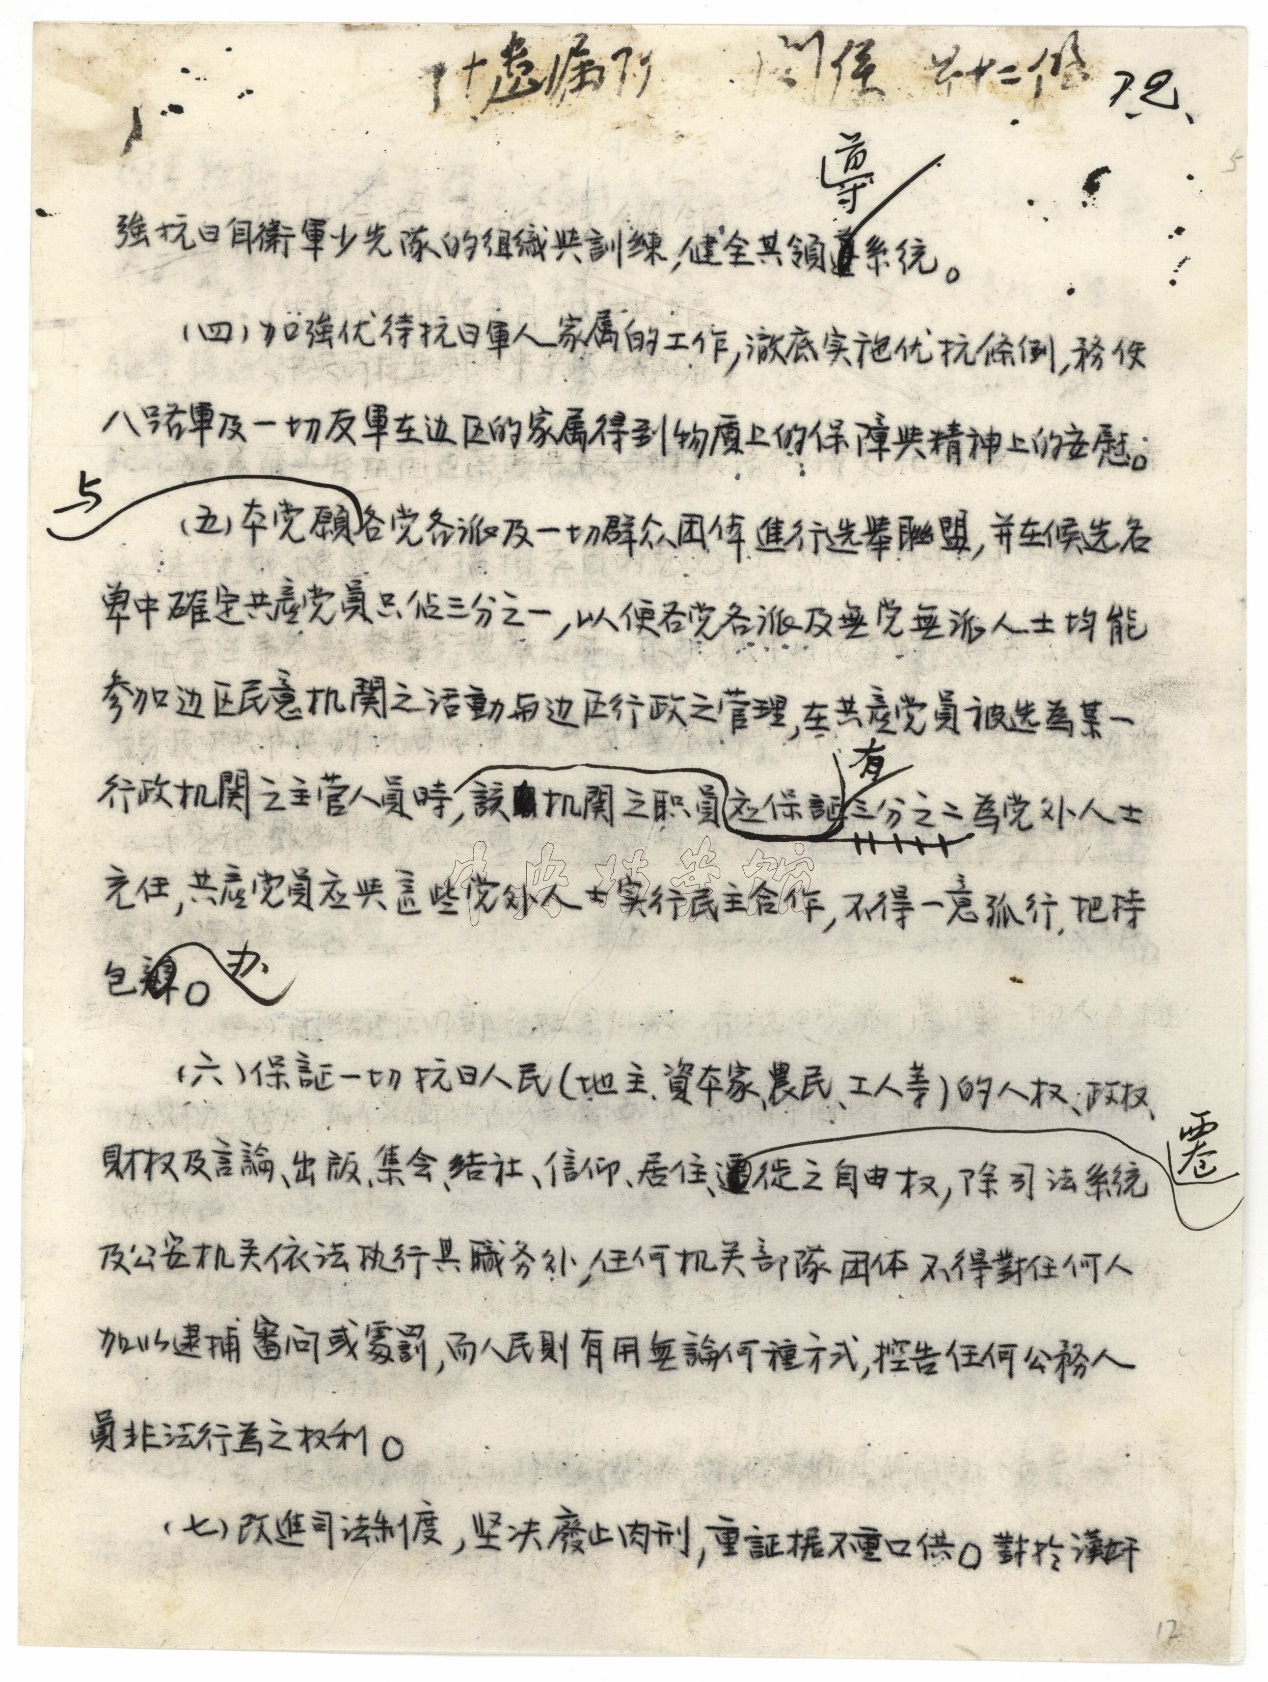 72
導
強抗日自衛軍少先隊的組織與訓練,健全其領導系统。
(四)加強优待抗日軍人家属的工作,澈底实施优抗條例,務使
八路軍及一切友軍在边区的家属得到物质上的保障與精神上的安慰。
与
(五)本党願各党各派及一切群众团体進行选举聯盟,并在候选名
單中確定共產党員只佔三分之一,以便各党各派及無党無派人士均能
参加边区民意机関之活動与边区行政之管理,在共產党員被选為某一
有
行政机関之主管人員時,該机関之职員应保証三分之二為党外人士
充任,共產党員应與這些党外人士实行民主合作,不得一意孤行,把持
包辦。办
(六)保証一切抗日人民(地主、資本家、農民、工人等)的人权、政权、
遷
財权及言論、出版、集会、結社、信仰、居住、遷徙之自由权,除司法系統
及公安机关依法执行其職务外,任何机关部隊团体不得對任何人
加以逮捕審问或處罰,而人民則有用無論何種方式,控告任何公務人
員非法行為之权利。
(七)改進司法制度,坚决廢止肉刑,重証据不重口供。對於漢奸
中央档案馆
5
12